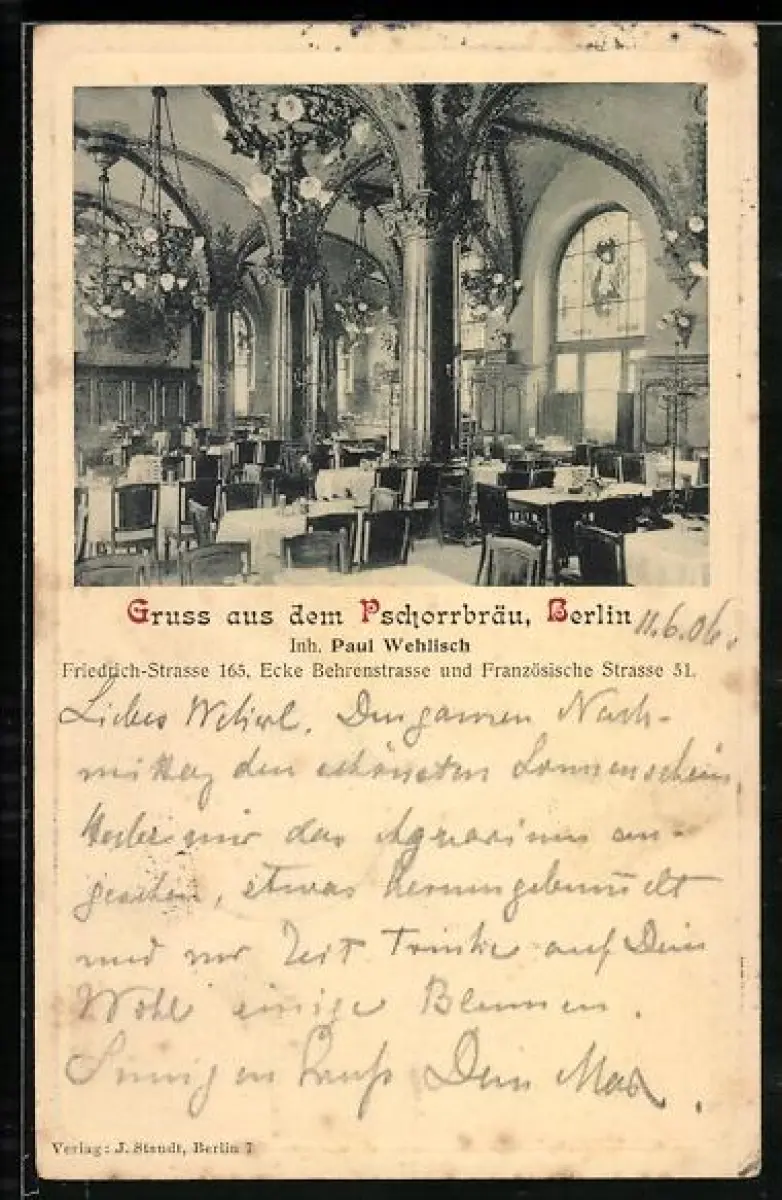 Gruss aus dem Pschorrbräu, Berlin 11.6.06.
Inh. Paul Wehlisch
Friedrich-Strasse 165, Ecke Behrenstrasse und Französische Strasse 51.
Liebes Den ganzen Nach-
mittag den schönsten Sonnenschein,
mir das Aquarium an-
gesehen, etwas herumgebummelt
und zur Zeit trinke auf Dein
Wohl einige Blumen.
Sinnigen Gruß Dein Max.
Verlag: J. Staudt, Berlin 7